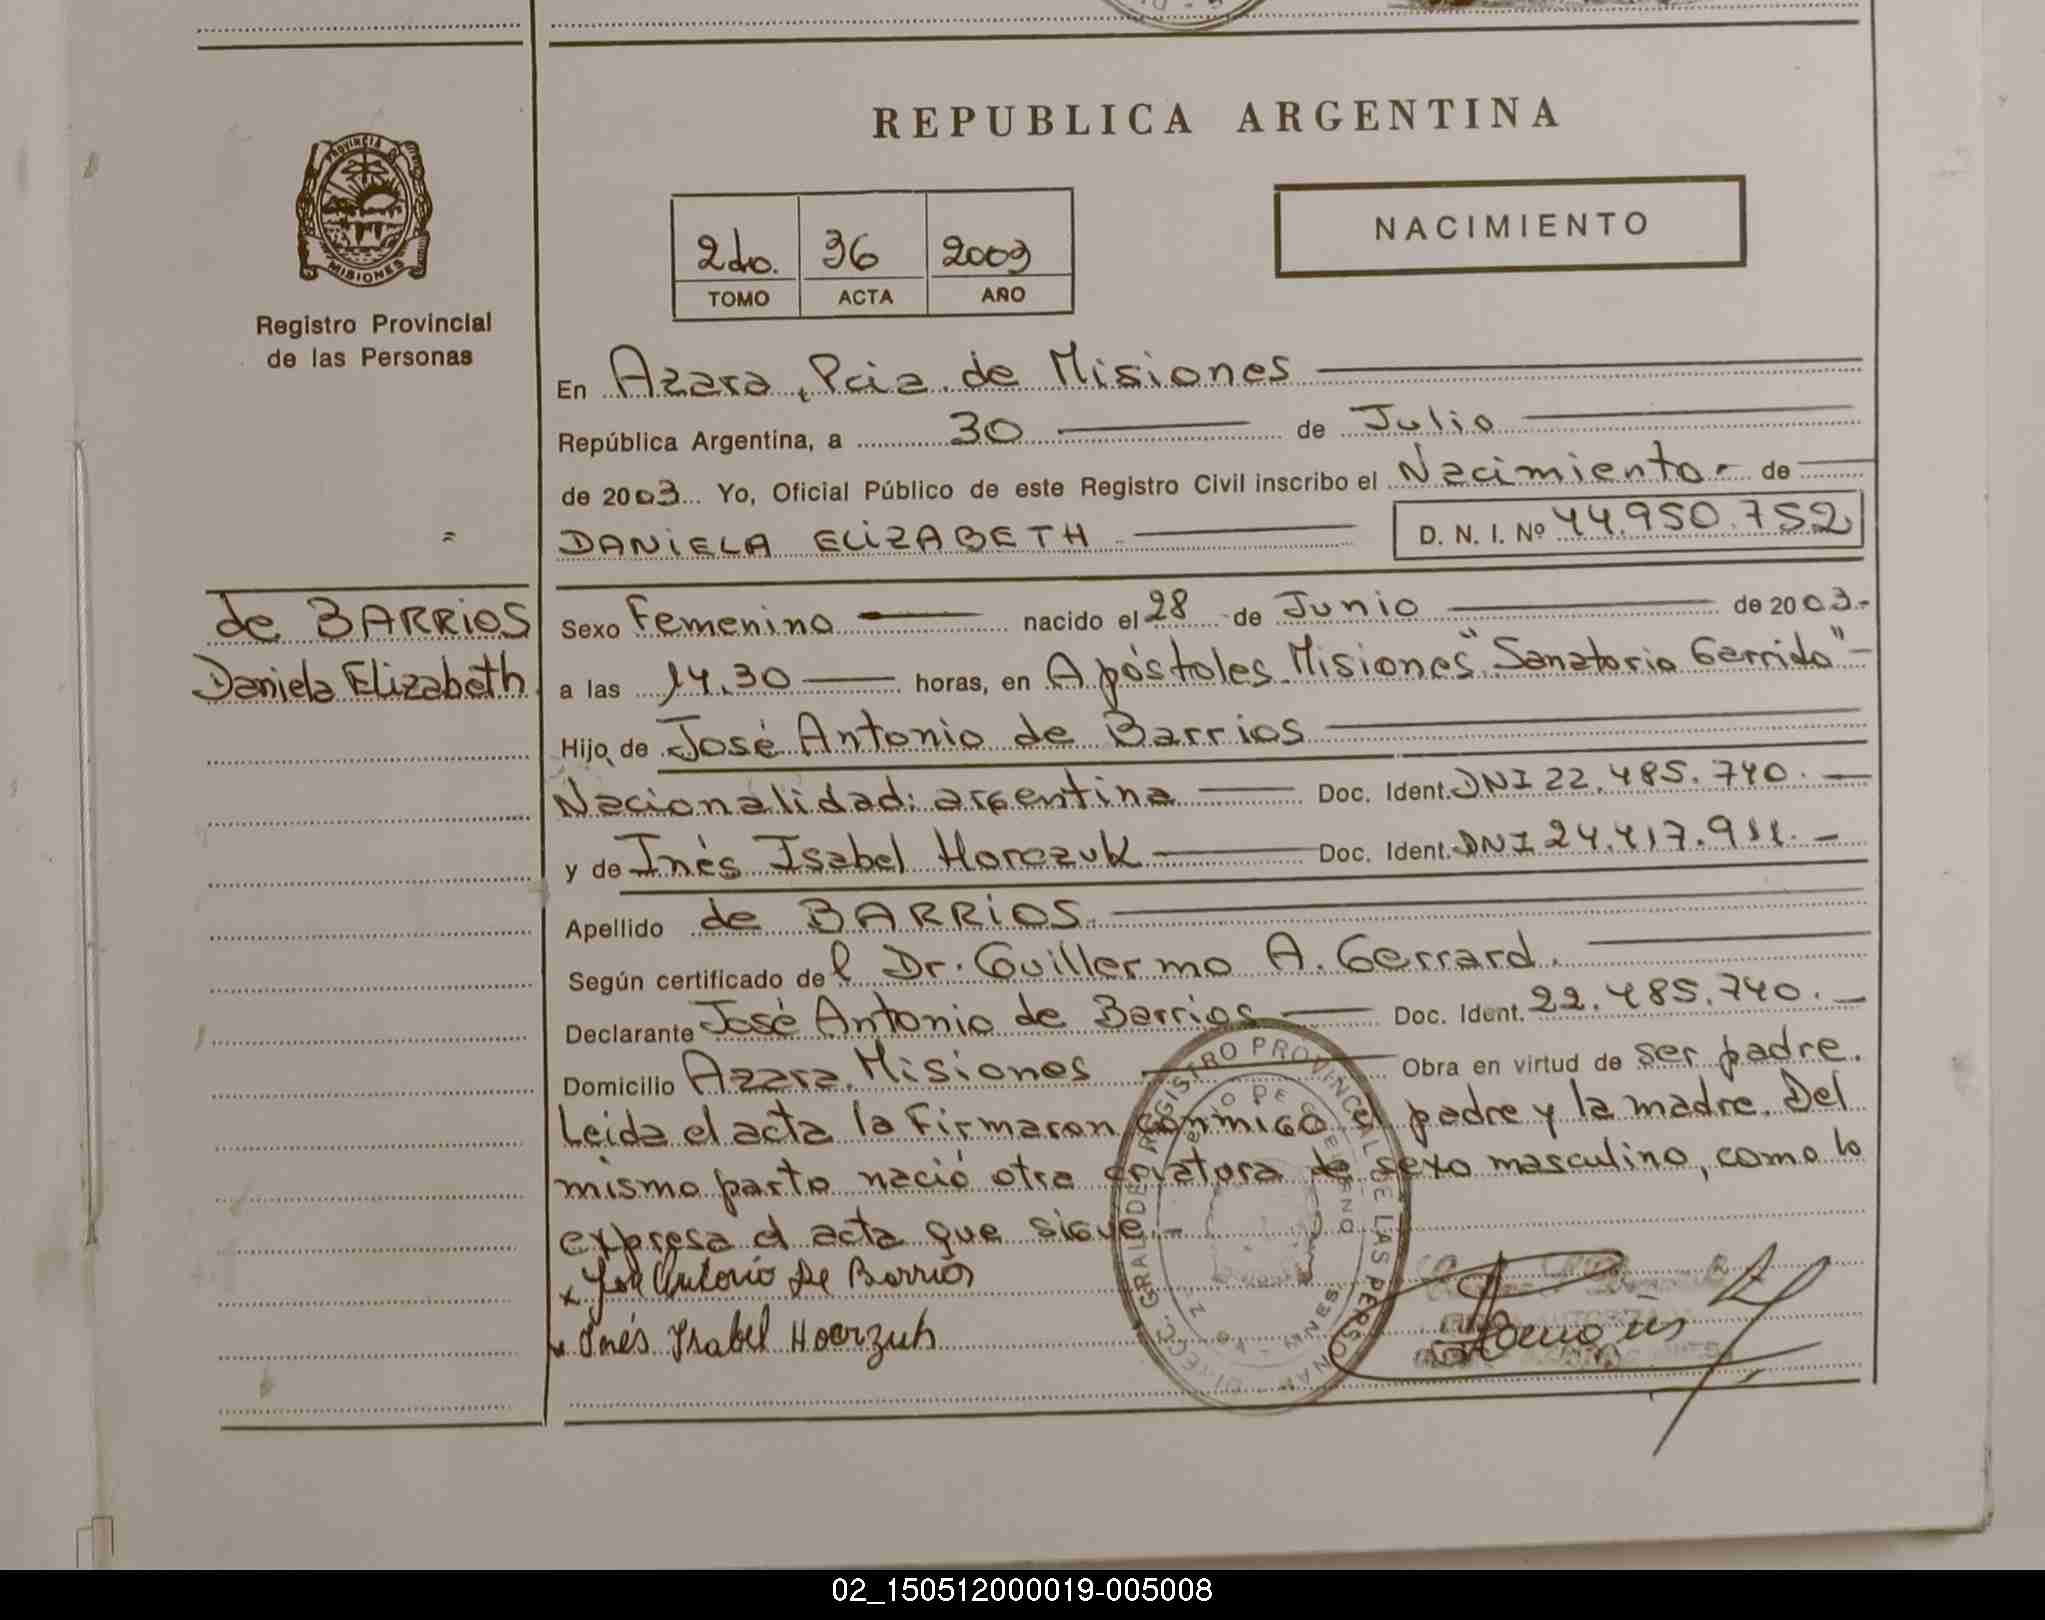 REPUBLICA ARGENTINA
PROVINCIA DE
MISIONES
Registro Provincial
de las Personas
2do. 36 2003
TOMO ACTA AÑO
NACIMIENTO
En Azara, Pcia. de Misiones
República Argentina, a 30 de Julio
de 2003 Yo, Oficial Público de este Registro Civil inscribo el Nacimiento - de
DANIELA ELIZABETH D. N. I. Nº 44.950.752
de BARRIOS
Daniela Elizabeth
Sexo Femenino nacido el 28 de Junio de 2003.-
a las 14.30 horas, en Apóstoles. Misiones "Sanatorio Garrido"-
Hijo de José Antonio de Barrios
Nacionalidad: argentina Doc. Ident. DNI 22.485.740.-
y de Inés Isabel Horczuk Doc. Ident. DNI 24.417.911.-
Apellido de BARRIOS.
Según certificado del Dr. Guillermo A. Gerrard.
Declarante José Antonio de Barrios Doc. Ident. 22.485.740.-
Domicilio Azara. Misiones Obra en virtud de ser padre.
Leida el acta la Firmaron conmigo el padre y la madre. Del
mismo parto nació otra criatura de sexo masculino, como lo
expresa el acta que sigue.-
x José Antonio De Barrios
x Inés Isabel Hoerzuk
DIRECC. GRAL. DE REGISTRO PROVINCIAL DE LAS PERSONAS
02_150512000019-005008